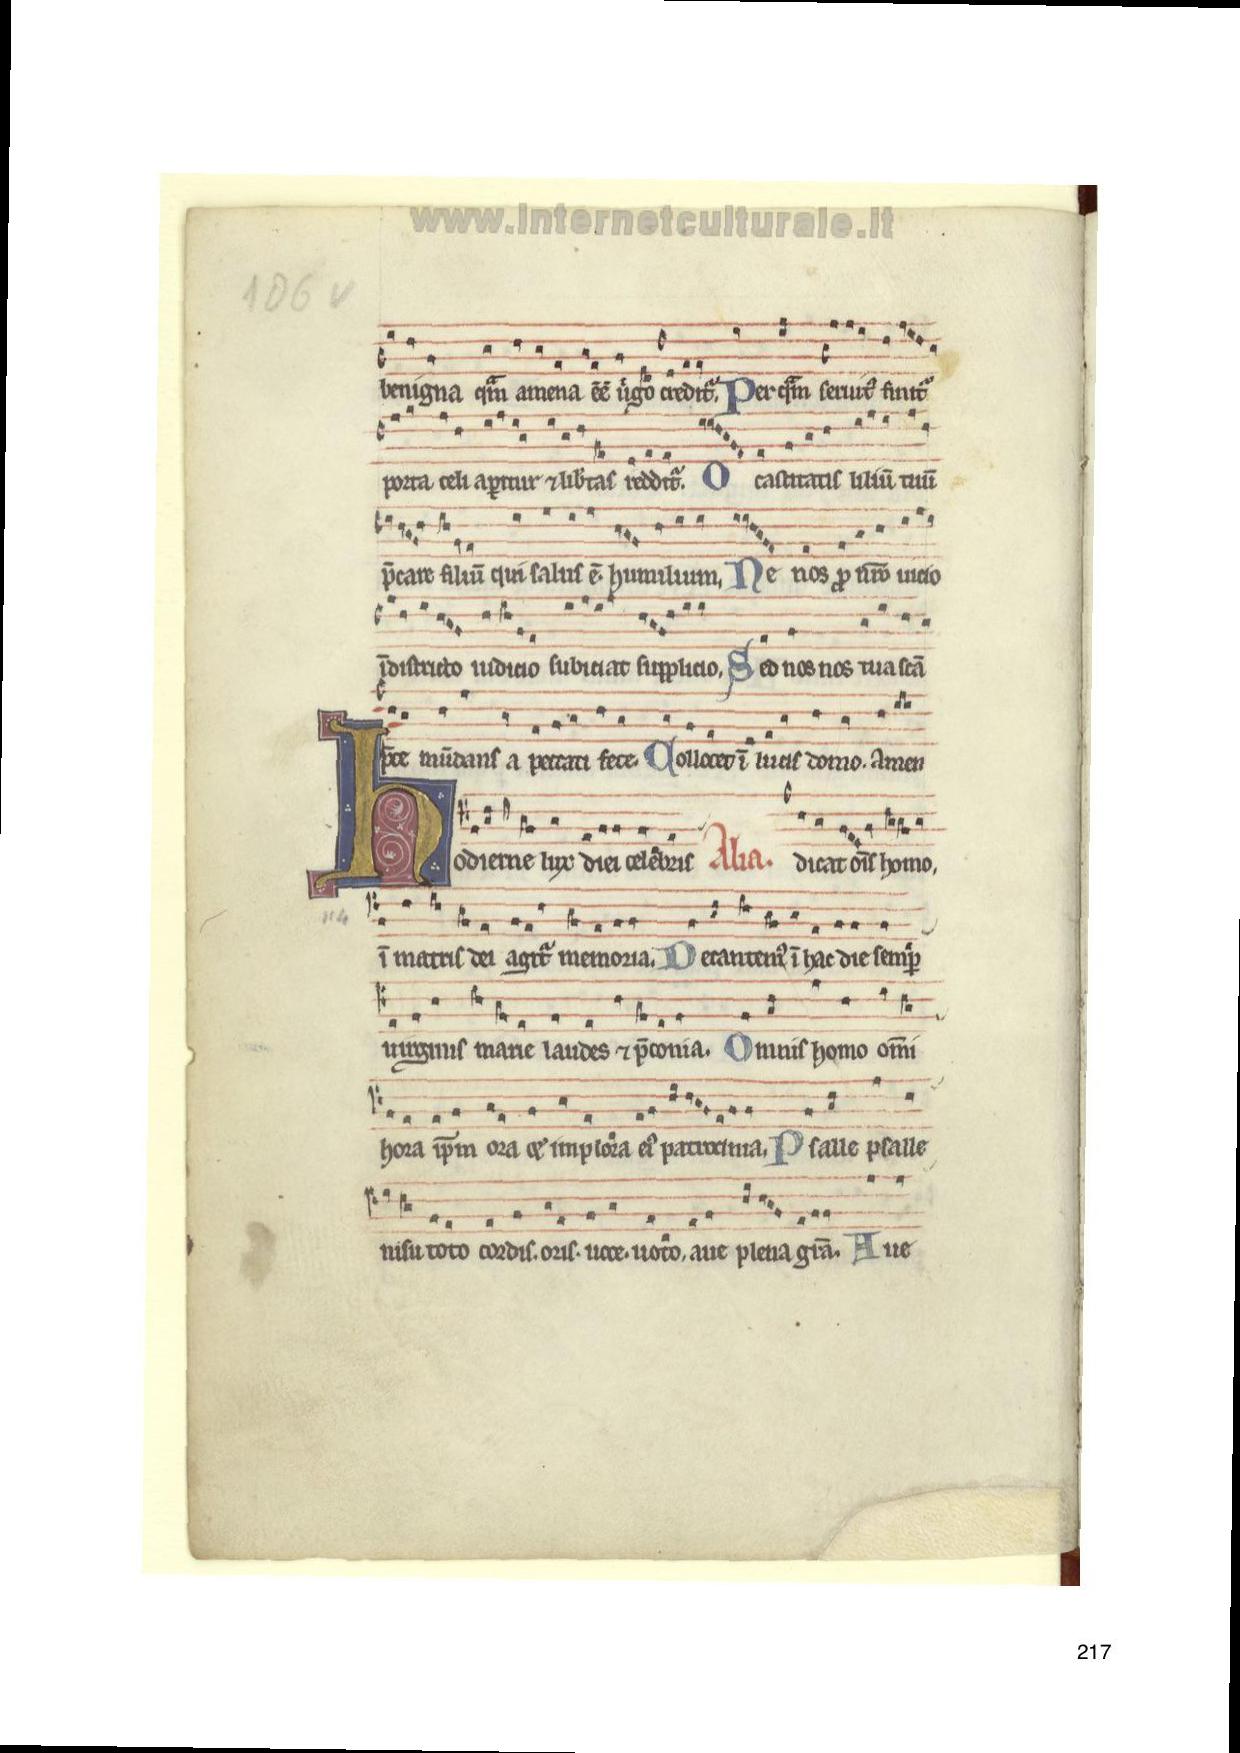 www.internetculturale.it
106 v
benigna qm̄ amena ēē ụ̇go credit᷑. Per qm̄ seruit᷒ finit᷑
porta celi aꝑitur ⁊ lib̾tas reddit᷑. O castitatis liliū tuū
p̄care filiū qui salus ē. humilium, Ne nos ꝓ nr̄o uicio
ī districto iudicio subiciat supplicio, Sed nos nos tua sc̄a
p̄ce mūdans a peccati fece. Collocet ī lucis domo. Amen
Hodierne lux diei celebris Alia. dicat oīs homo,
ī matris dei agit᷑ memoria. Decantem᷒ ī hac die semꝑ
uirginis marie laudes ⁊ p̄conia. Omnis homo om̄i
hora ip̄am ora & implora ei᷒ patrocinia, Psalle psalle
nisu toto cordis. oris. uoce. uoto, aue plena gr̄a. Aue
217